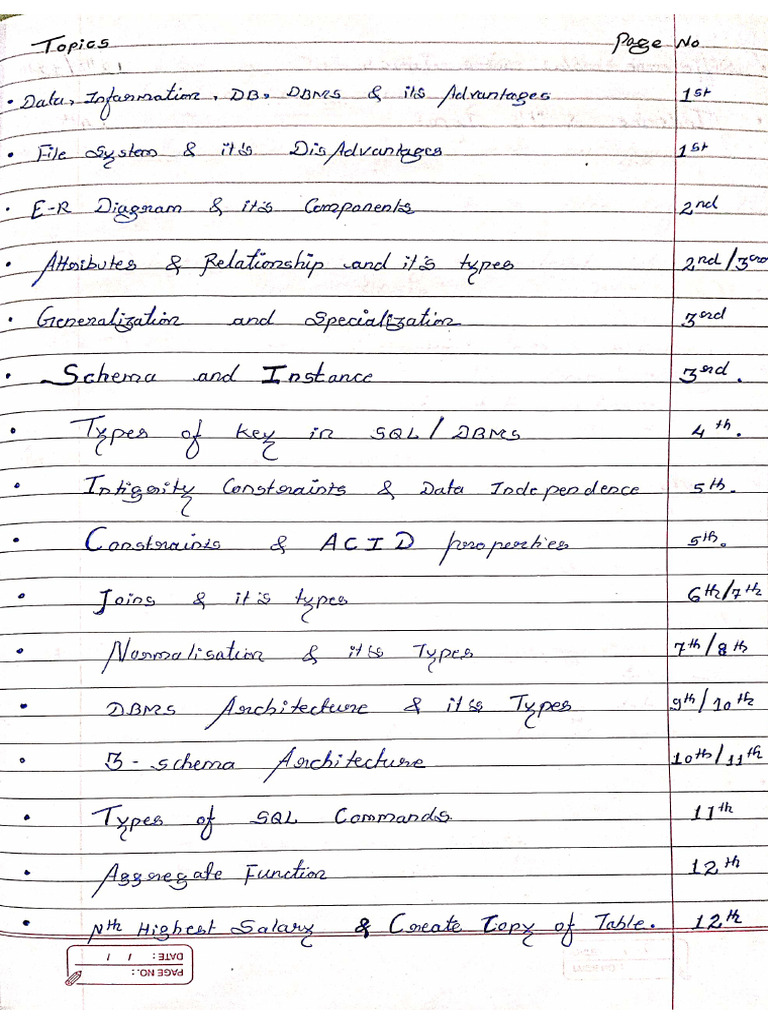 Topics Page No.
• Data, Information, DB, DBMS & its Advantages 1st
• File System & it's DisAdvantages 1st
• E-R Diagram & it's Components 2nd
• Attributes & Relationship and it's types 2nd/3rd
• Generalization and Specialization 3rd
• Schema and Instance 3rd.
• Types of key in SQL/DBMS 4th.
• Intigrity Constraints & Data Independence 5th.
• Constraints & ACID properties 5th.
• Joins & it's types 6th/7th
• Normalisation & it's Types 7th/8th
• DBMS Architecture & it's Types 9th/10th
• 3-schema Architecture 10th/11th
• Types of SQL Commands 11th
• Aggregate Function 12th
• Nth Highest Salary & Create Copy of Table. 12th
DATE: / /
PAGE NO.: